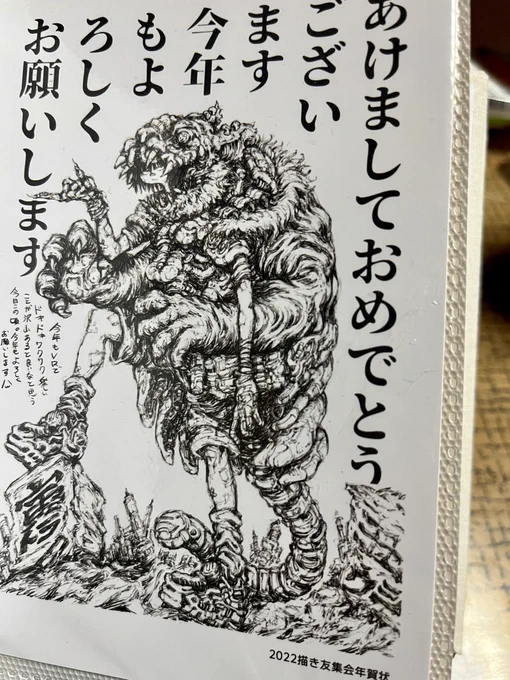 あけましておめでとう
ござい
ます
今年
もよ
ろしく
お願いします
今年もVロで
ドキドキワクワク楽しい
ことが沢山あると良いなと思う
今日この頃。今年もよろしく
お願いします
2022描き友集会年賀状